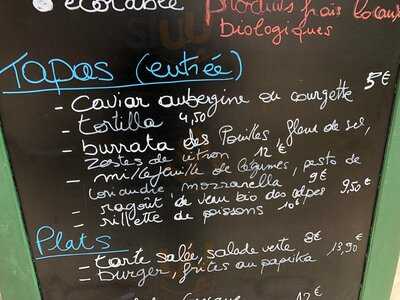 écotable Produits frais locaux
biologiques
Tapas (entrée)
- Caviar aubergine ou courgette 5€
- tortilla 4,50
- burrata des Pouilles fleur de sel,
zestes de citron 12€
- millefeuille de légumes, pesto de
coriandre mozzarella 9€
- ragoût de veau bio des alpes 9,50€
- rillette de poissons 10€
Plats
- tarte salée, salade verte 8€
- burger, frites au paprika 13,90€
12€